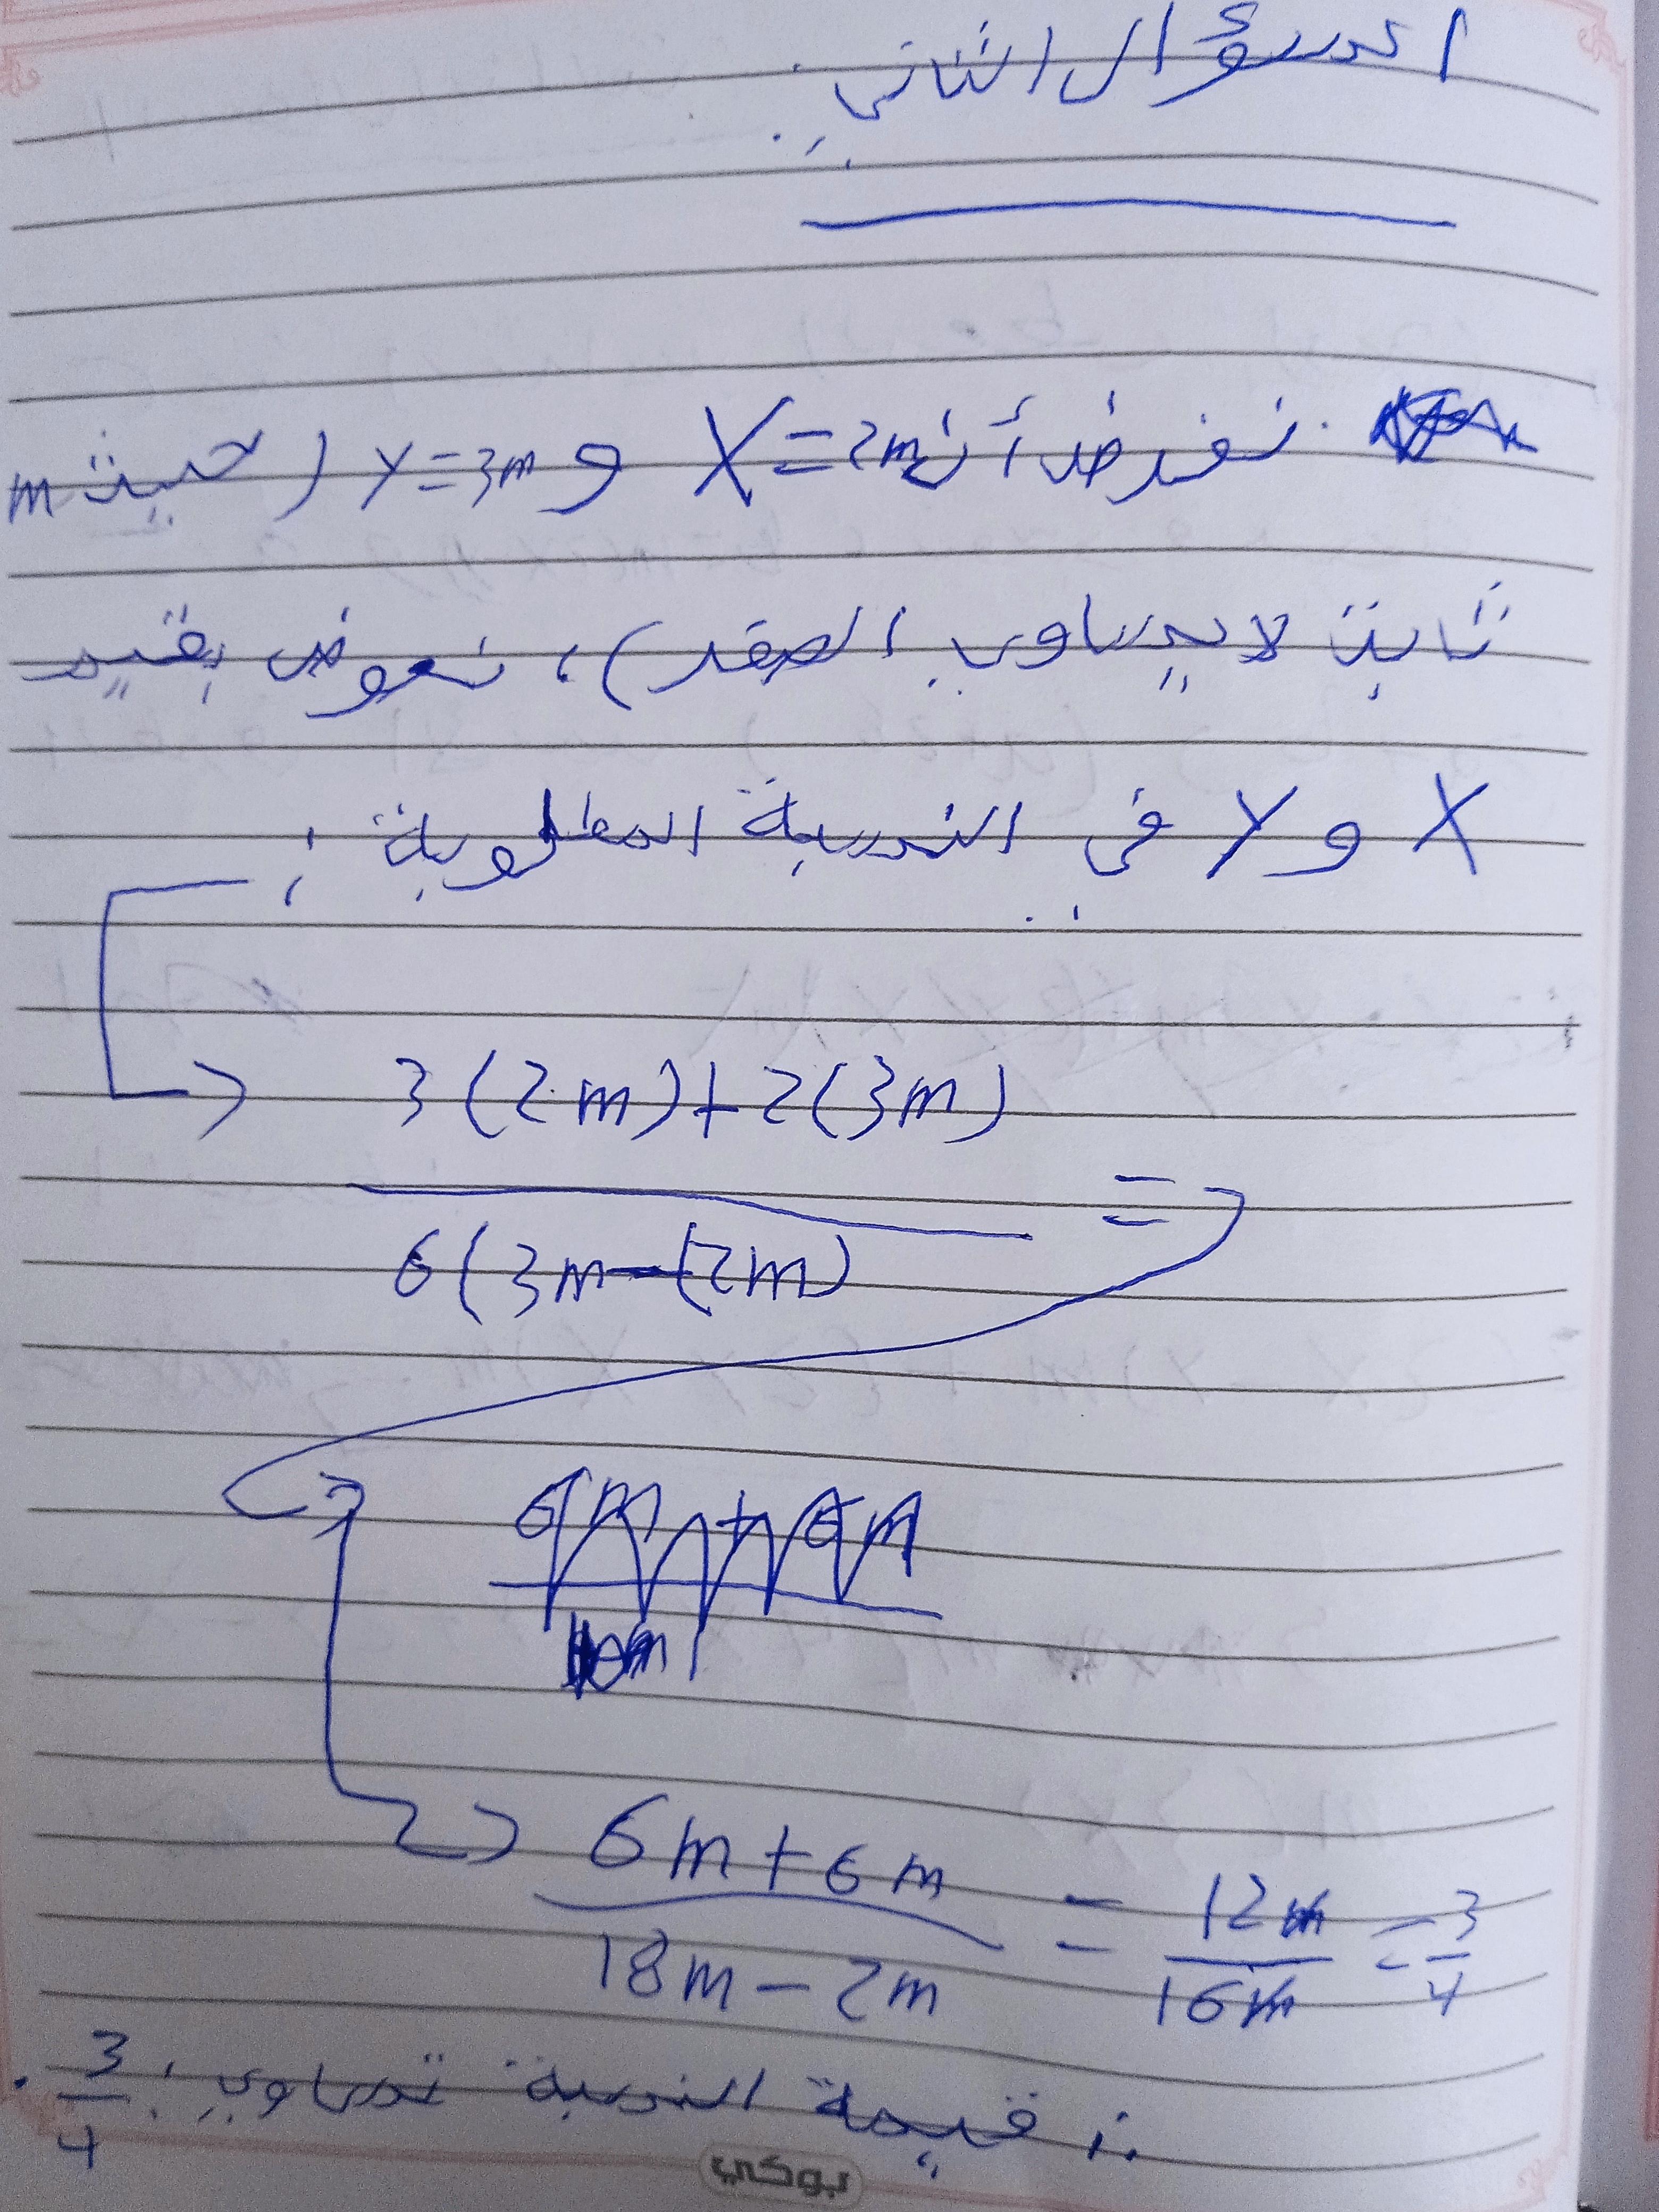 السؤال الثاني:
نفرض أن X = 2m و y = 3m (حيث m
ثابت لا يساوي الصفر)، نعوض بقيم
X و y في النسبة المطلوبة:
3(2m)+2(3m)
=
6(3m-(2m)
6m+6m
6m+6m = 12m = 3
18m-2m 16m 4
∴ قيمة النسبة تساوي: 3/4.
بوكي